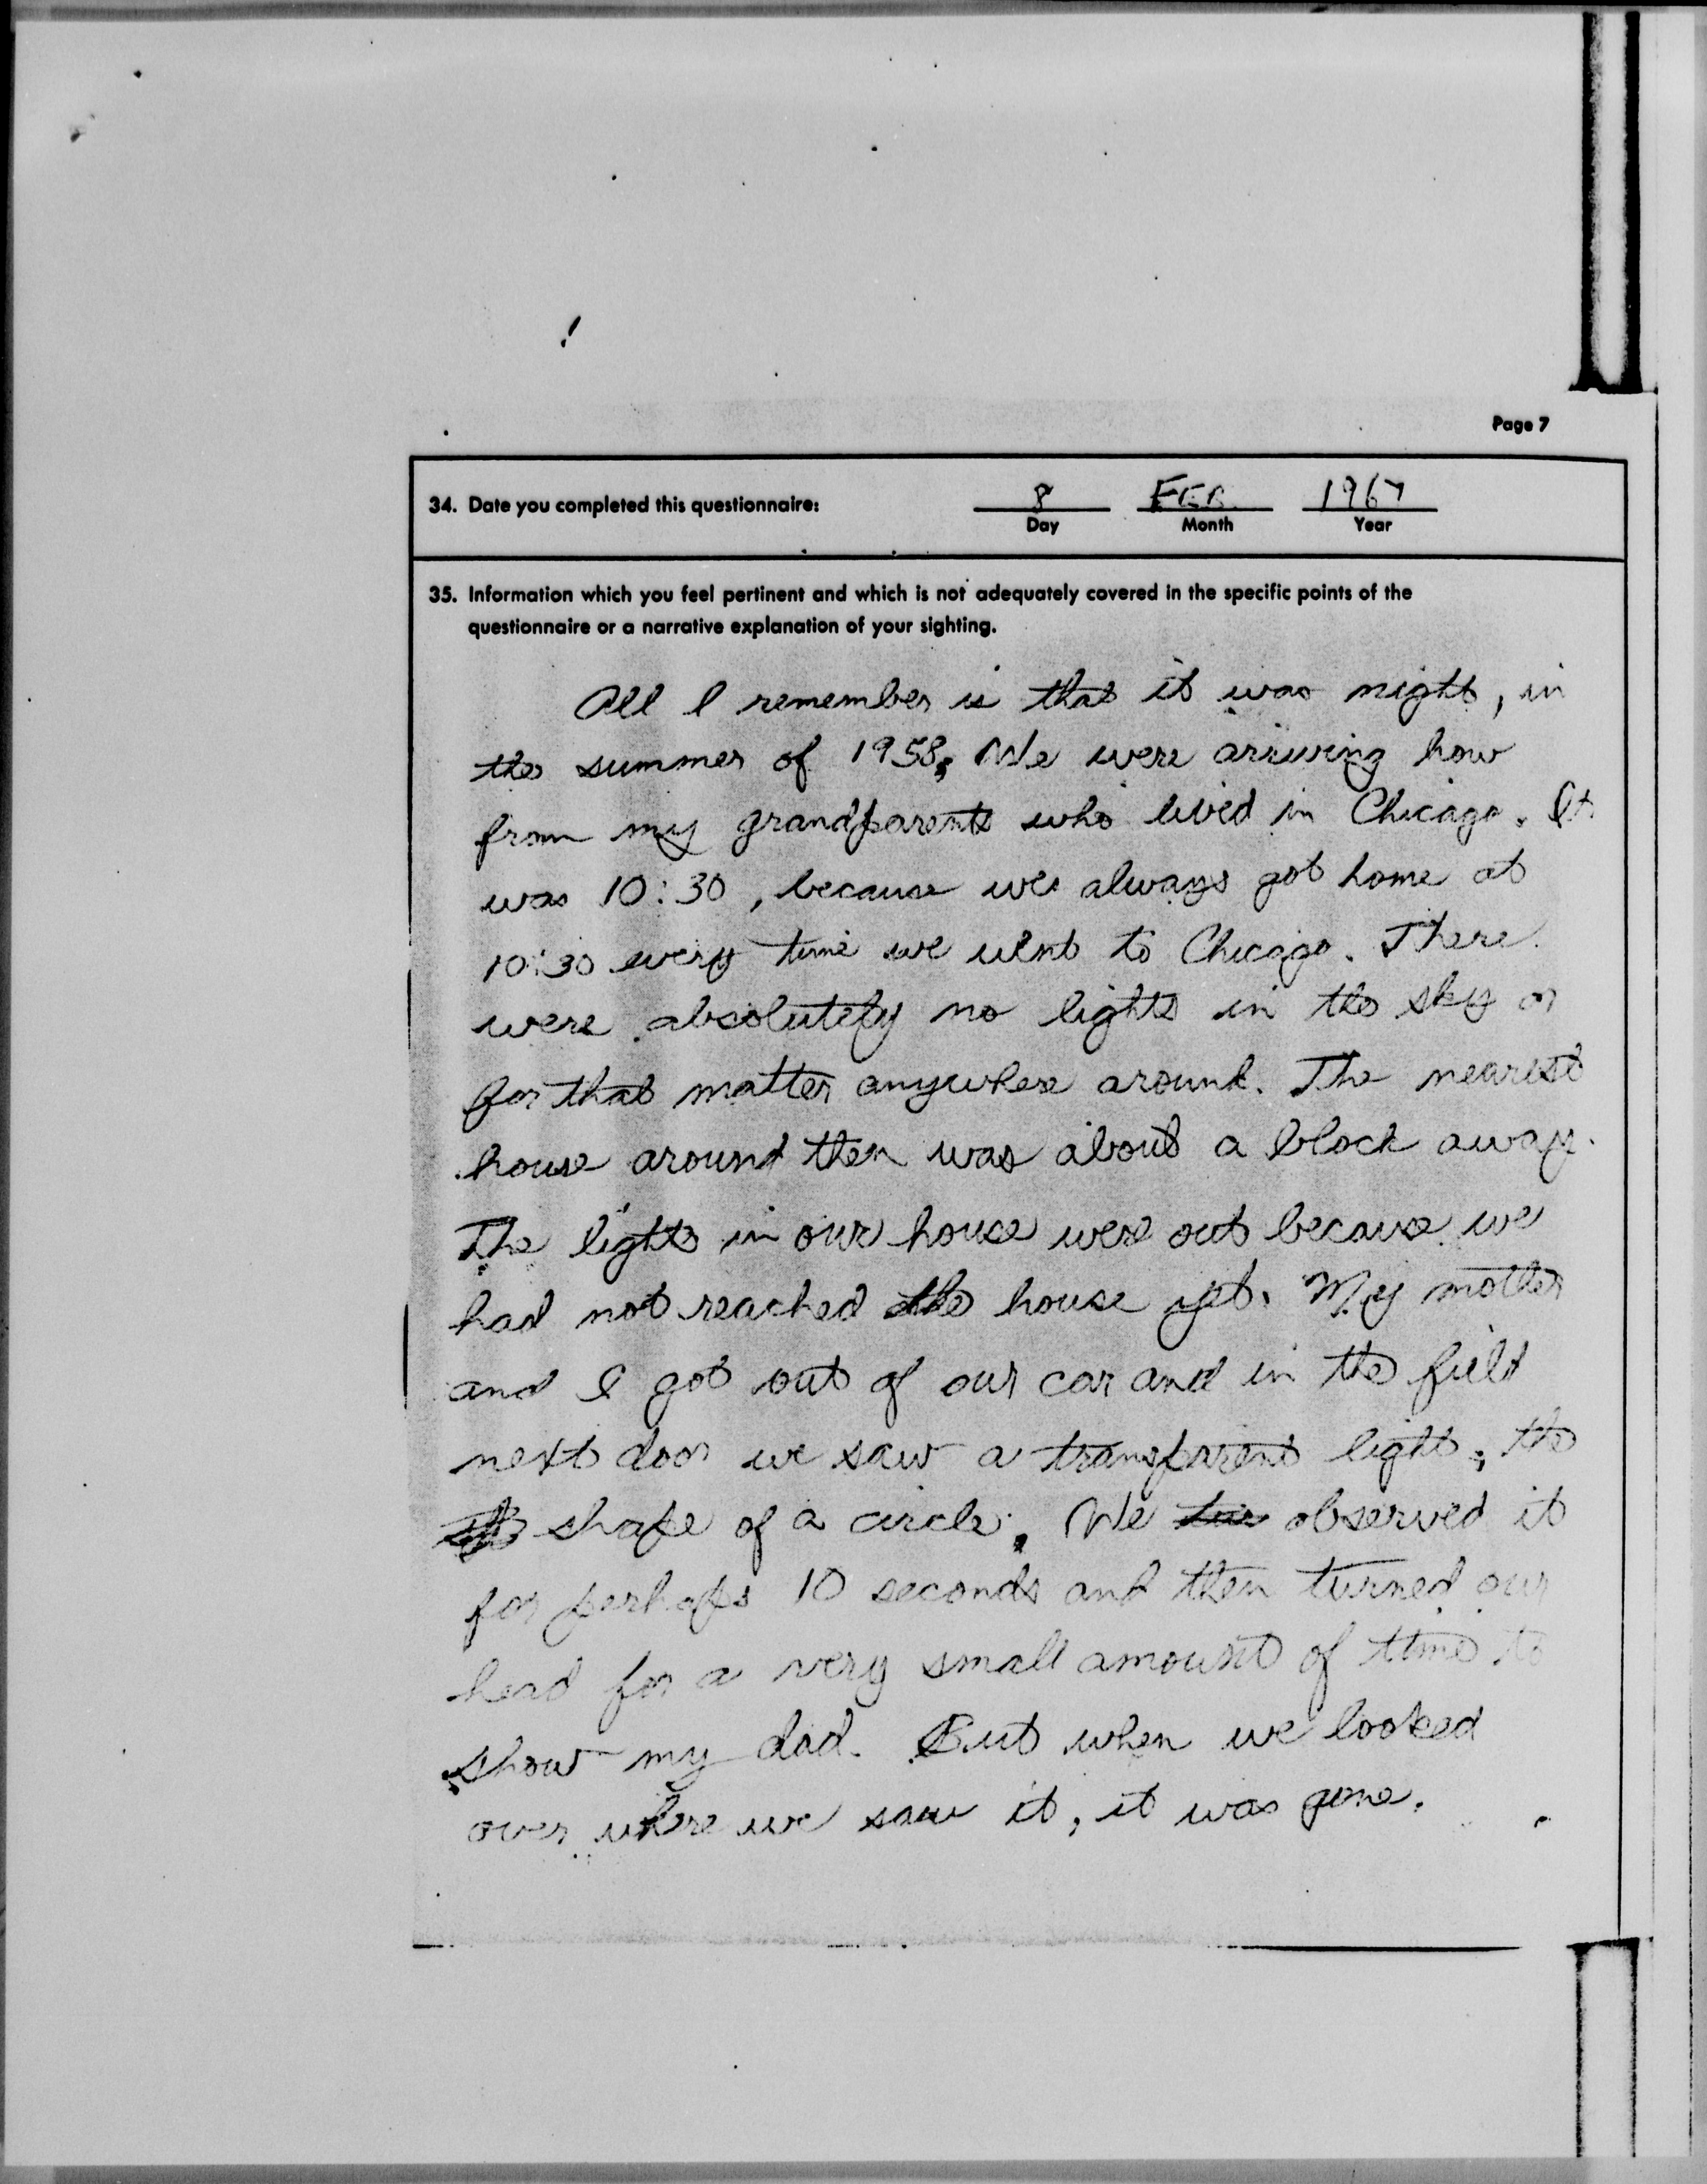 Page 7
34. Date you completed this questionnaire: 8 FEB. 1967
Day Month Year
35. Information which you feel pertinent and which is not adequately covered in the specific points of the
questionnaire or a narrative explanation of your sighting.
All I remember is that it was night, in
the summer of 1958. We were arriving how
from my grandparents who lived in Chicago. It
was 10:30, because we always got home at
10:30 every time we went to Chicago. There
were absolutely no lights in the sky or
for that matter anywhere around. The nearest
house around then was about a block away.
The lights in our house were out because we
had not reached the house yet. My mother
and I got out of our car and in the field
next door we saw a transparent light, the
shape of a circle. We observed it
for perhaps 10 seconds and then turned our
head for a very small amount of time to
show my dad. But when we looked
over where we saw it, it was gone.